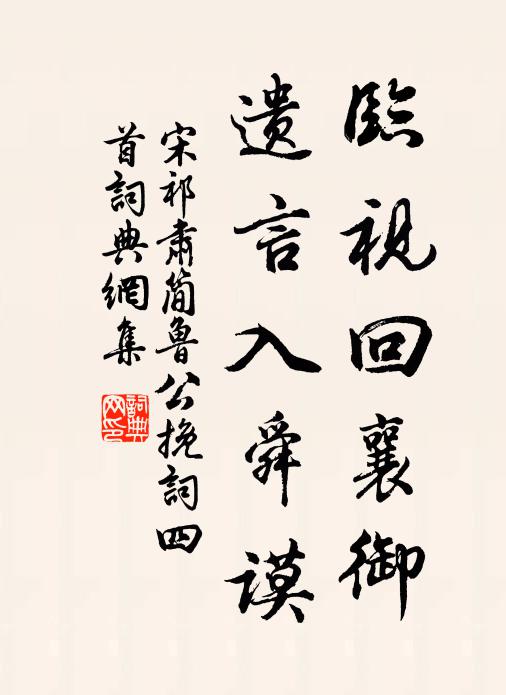 臨視回襄御
遺言入舜謨
宋祁肅簡魯公挽詞四
首詞典網集
詞典
网印